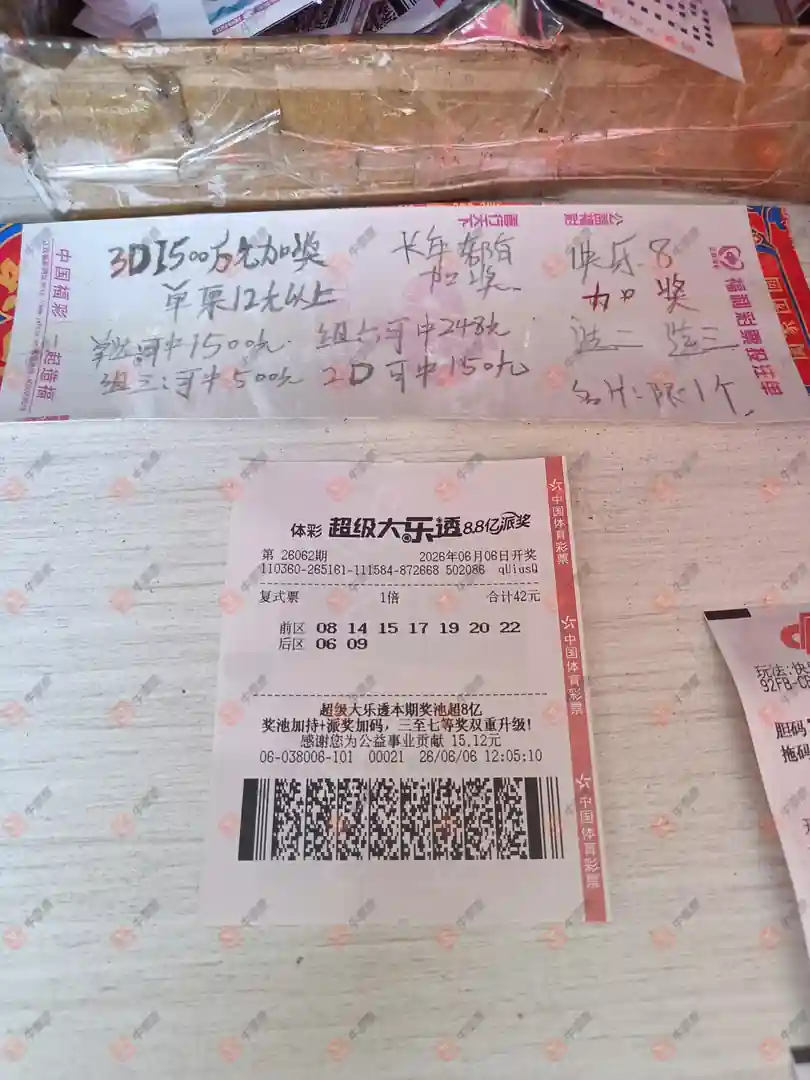 3D1500万元加奖
单票12元以上
单选可中1500元. 组六可中248元
组三:可中500元 2D可中150元
长年都有
加奖
快乐8
加奖
选二 选三
中国福彩 一起造福
喜行天下
公益福彩
福利彩票投注单
体彩 超级大乐透 8.8亿派奖
第 26062期 2026年06月06日开奖
110360-265161-111584-872668 502086 qUiusQ
复式票 1倍 合计42元
前区 08 14 15 17 19 20 22
后区 06 09
超级大乐透本期奖池超8亿
奖池加持+派奖加码，三至七等奖双重升级!
感谢您为公益事业贡献 15.12元
06-038006-101 00021 26/06/06 12:05:10
中国体育彩票
中国体育彩票
中国体育彩票
玩法:快
92FB-CB
胆码
拖码